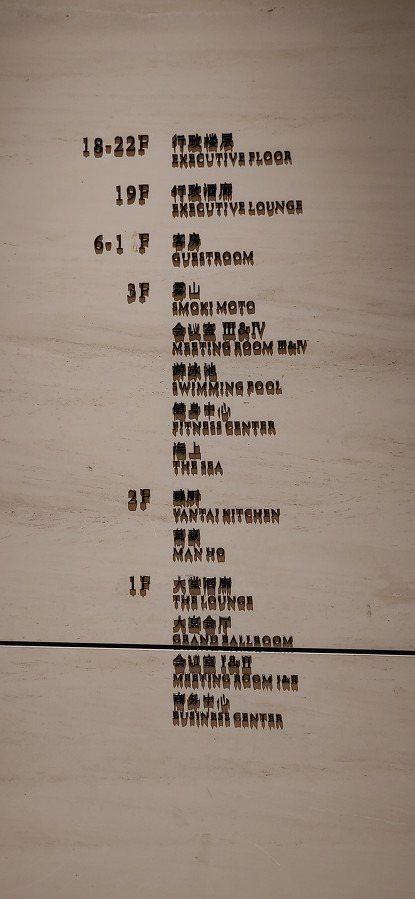 18-22F 行政楼层
EXECUTIVE FLOOR
19F 行政酒廊
EXECUTIVE LOUNGE
客房
GUESTROOM
3F 雾山
SMOKI MOTO
会议室 III&IV
MEETING ROOM III&IV
游泳池
SWIMMING POOL
健身中心
FITNESS CENTER
海上
THE SEA
2F
YANTAI KITCHEN
MAN HO
1F 大堂酒廊
THE LOUNGE
大宴会厅
GRAND BALLROOM
会议室 I&II
MEETING ROOM I&II
商务中心
BUSINESS CENTER